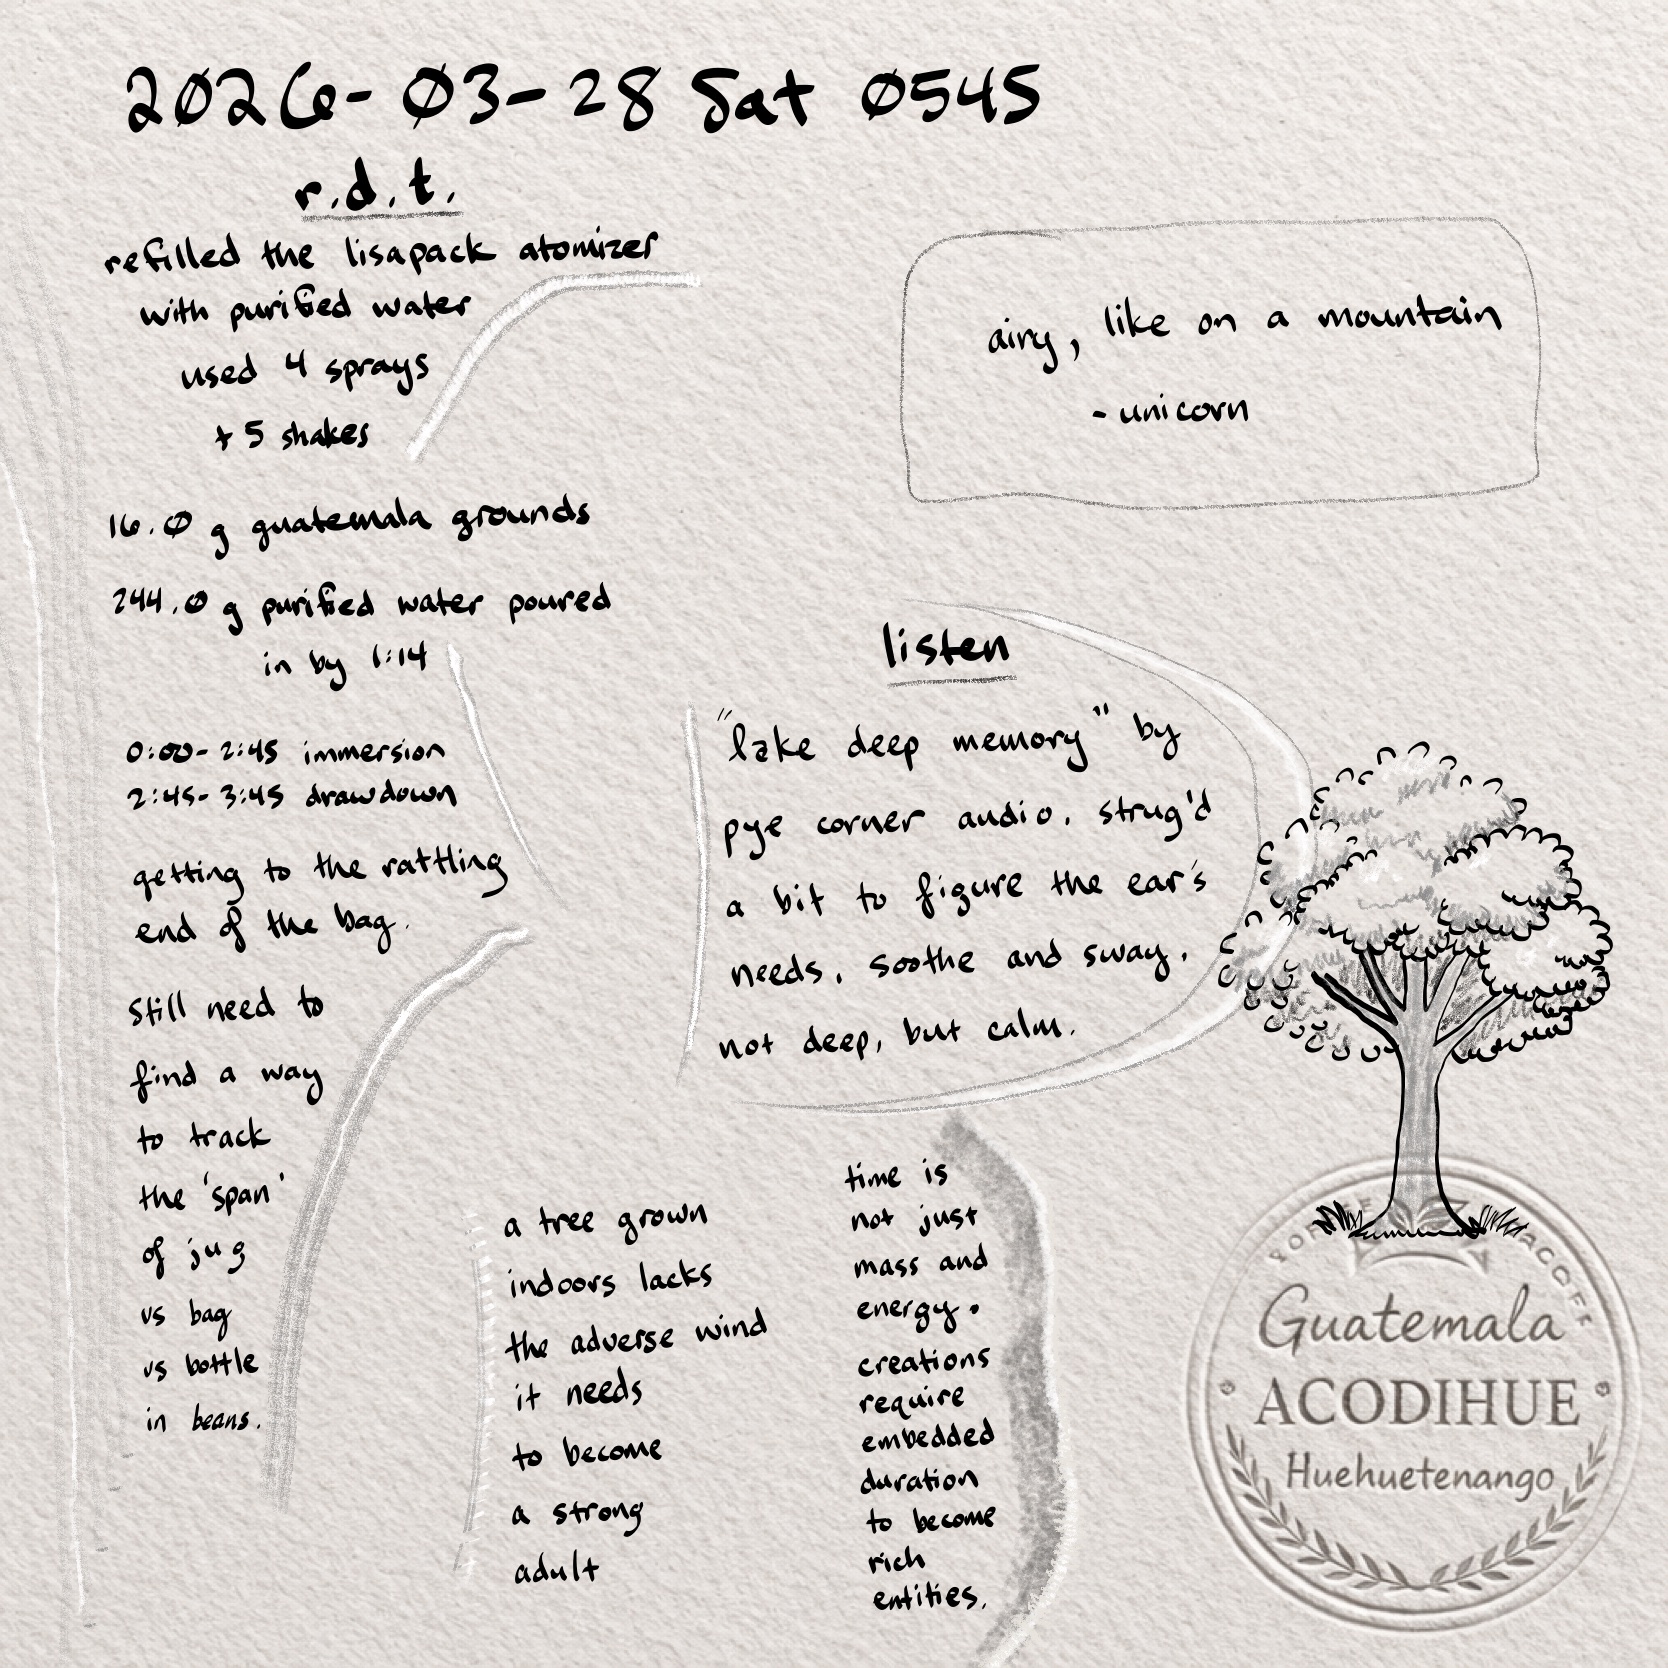 2026-03-28 Sat 0545
r.d.t.
refilled the lisapack atomizer
with purified water
used 4 sprays
+ 5 shakes
16.0 g guatemala grounds
244.0 g purified water poured
in by 1:14
0:00-2:45 immersion
2:45-3:45 drawdown
getting to the rattling
end of the bag.
still need to
find a way
to track
the 'span'
of jug
vs bag
vs bottle
in beans.
airy, like on a mountain
- unicorn
listen
"lake deep memory" by
pye corner audio. strug'd
a bit to figure the ear's
needs. soothe and sway.
not deep, but calm.
a tree grown
indoors lacks
the adverse wind
it needs
to become
a strong
adult
time is
not just
mass and
energy.
creations
require
embedded
duration
to become
rich
entities.
Guatemala
ACODIHUE
Huehuetenango